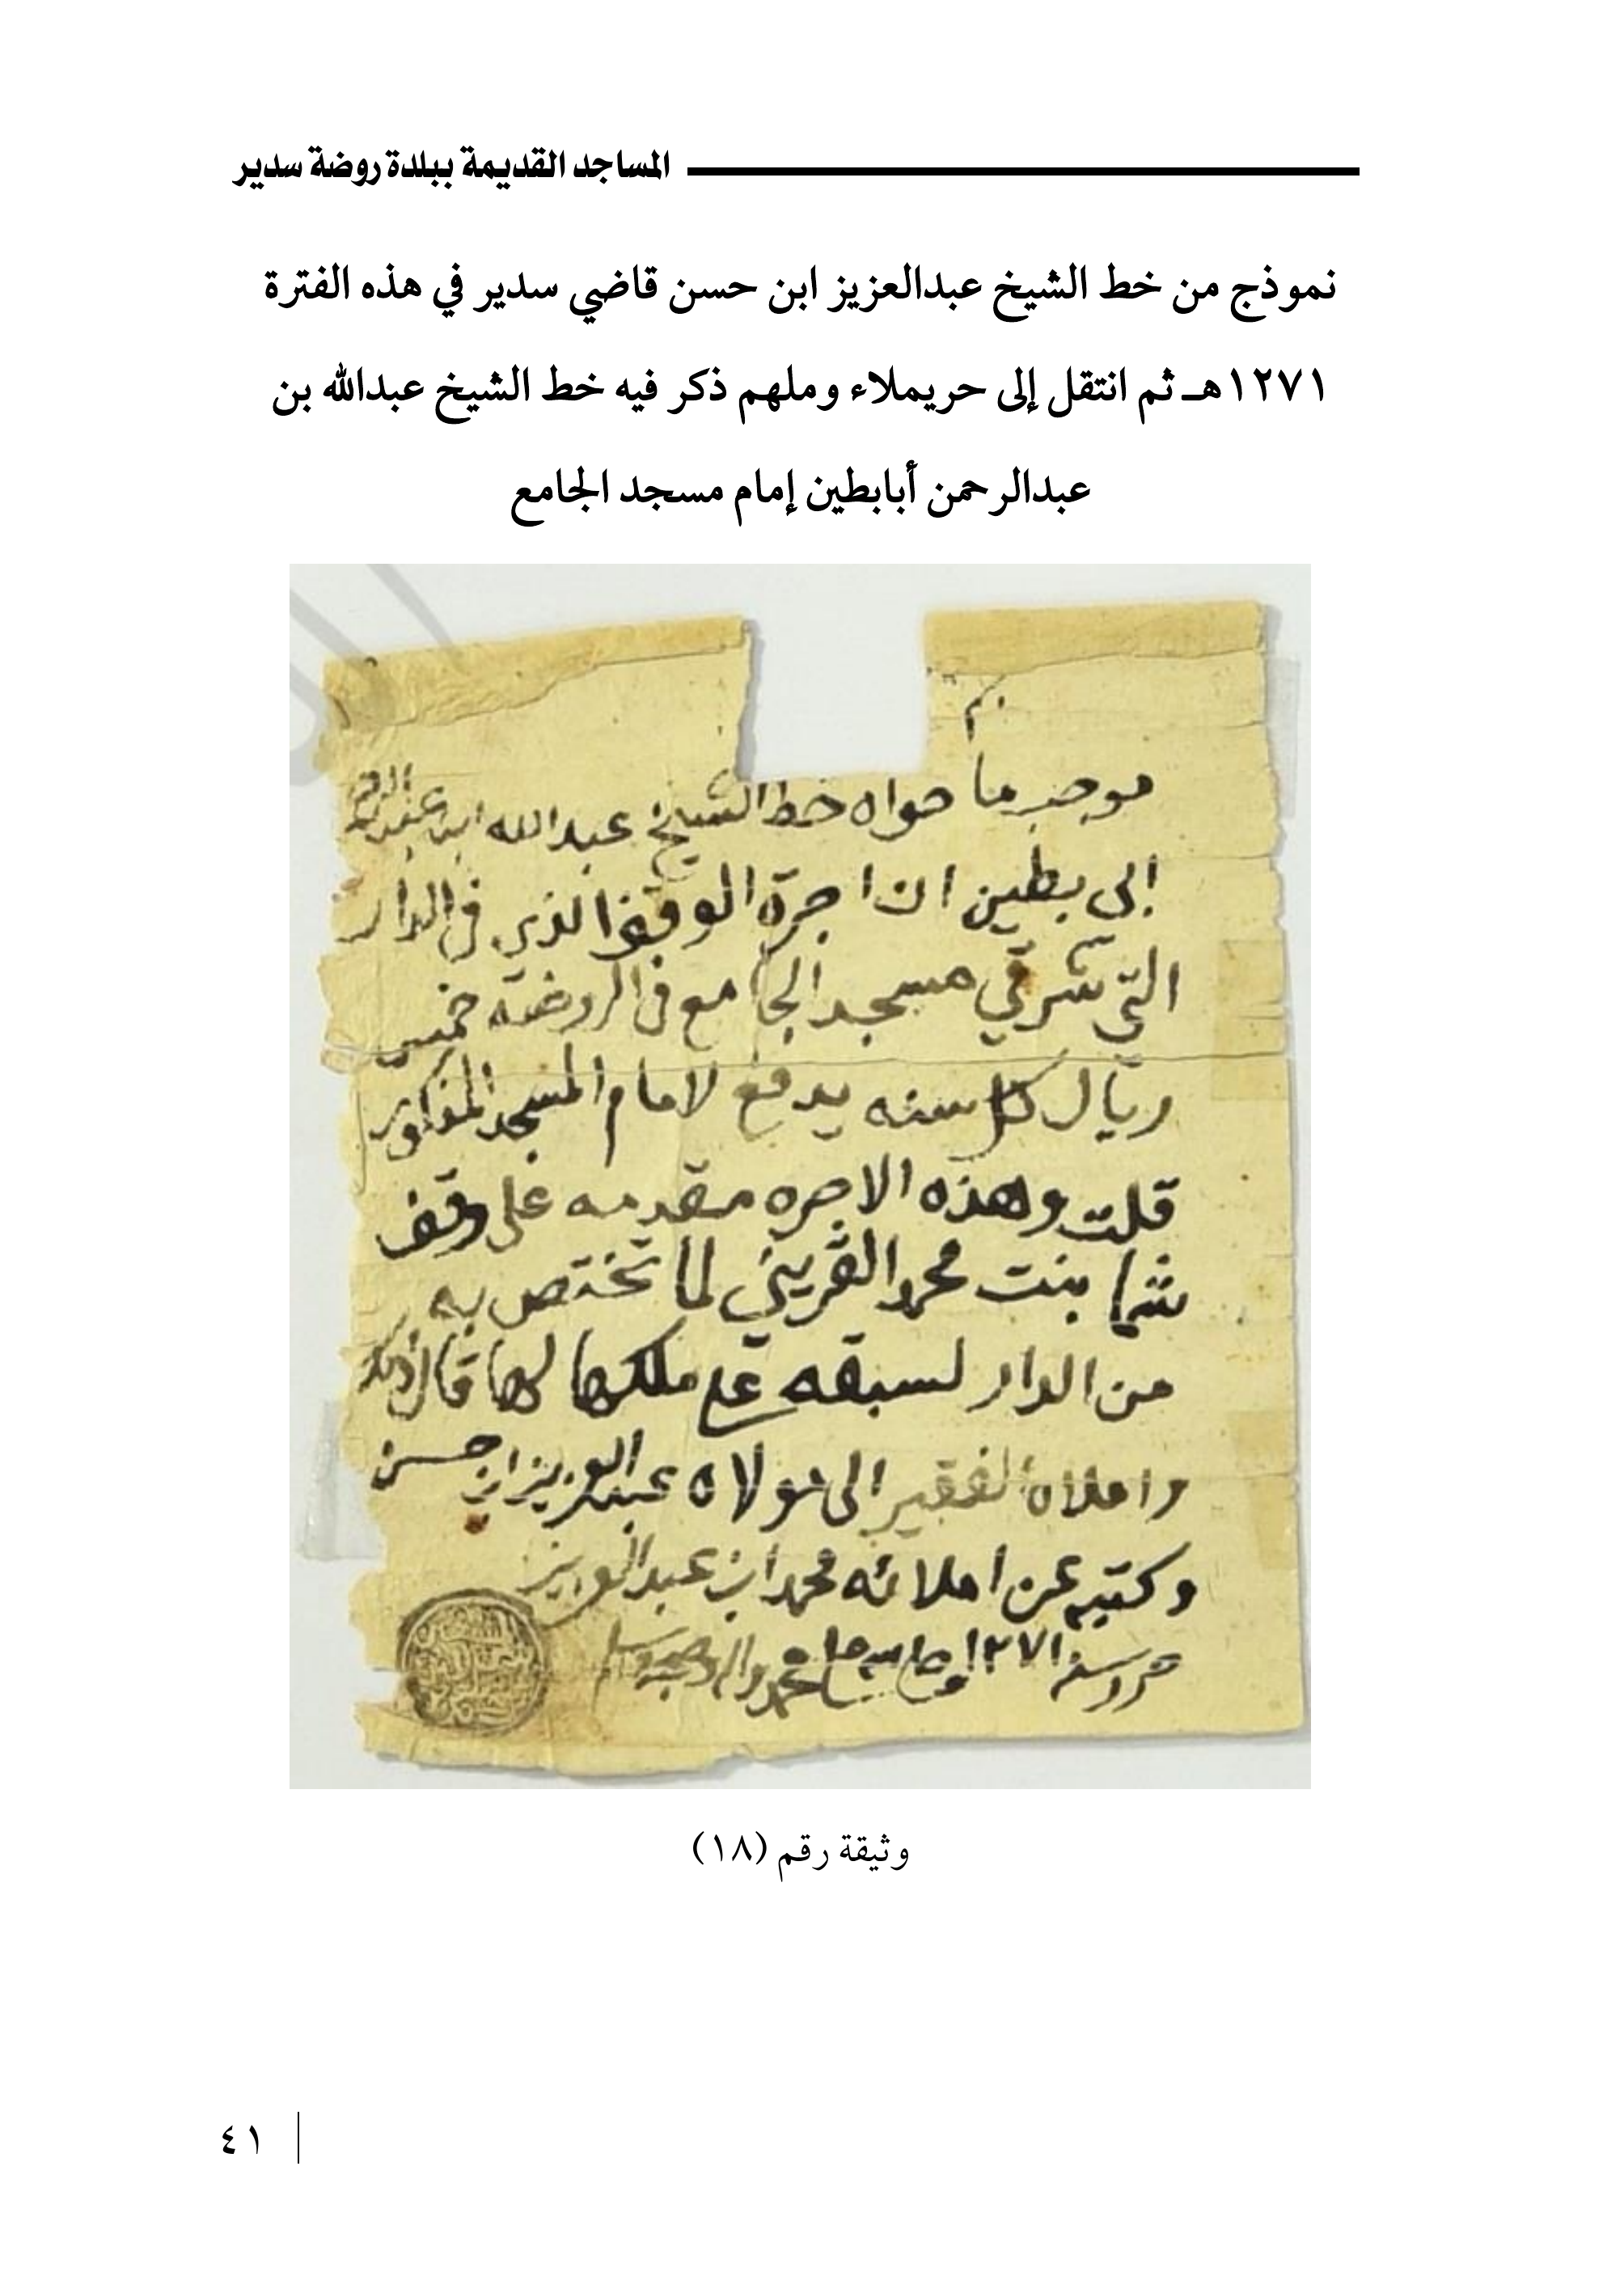 المساجد القديمة ببلدة روضة سدير
نموذج من خط الشيخ عبدالعزيز ابن حسن قاضي سدير في هذه الفترة
١٢٧١هـ ثم انتقل إلى حريملاء وملهم ذكر فيه خط الشيخ عبدالله بن
عبدالرحمن أبابطين إمام مسجد الجامع
موجب ما حواه خط الشيخ عبدالله ابن عبدالرحمن
ابى بطين ان اجرة الوقف الذي في الدار
التي شرقي مسجد الجامع في الروضه خمس
ريال كل سنه يدفع لامام المسجد المذكور
قلت وهذه الاجره مقدمه على وقف
شما بنت محمد القريني لما تختص به
من الدار لسبقه على ملكها لها قال ذلك
واملاه الفقير الى مولاه عبدالعزيز ابن حسن
وكتبه عن املائه محمد ابن عبدالعزيز
حرر سنة ١٢٧١ وصلى الله على محمد واله وصحبه وسلم
وثيقة رقم (١٨)
٤١